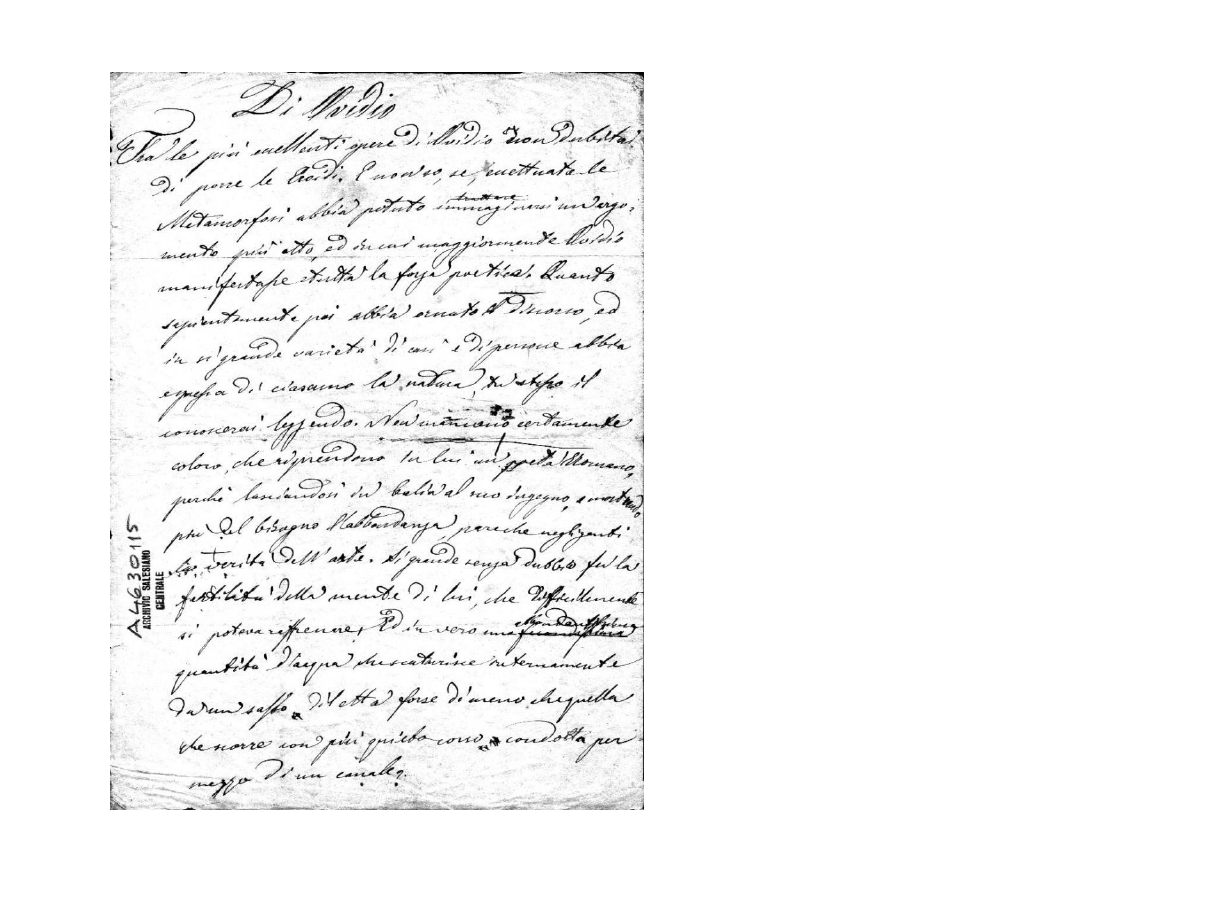 Di Ovidio
Tra le più eccellenti opere di Ovidio non dubito
di porre le Eroidi. E non so, se, eccettuate le
Metamorfosi abbia potuto trattare immaginarsi un argo-
mento più atto, ed in cui maggiormente Ovidio
manifestasse tutta la forza poetica. Quanto
sapientemente poi abbia ornato il discorso, ed
in sì grande varietà di casi e di persone abbia
espressa di ciascuno la natura, tu stesso il
conoscerai leggendo. Non mancano certamente
coloro, che riprendono in lui un poeta Romano,
perchè lasciandosi in balia al suo ingegno, e mostrando
più del bisogno l'abbondanza, pare che negligenti
la verità dell'arte. Sì grande senza dubbio fu la
fertilità della mente di lui, che difficilmente
si poteva raffrenare. Ed in vero una
quantità d'acqua che scaturisce internamente
da un sasso, diletta forse di meno che quella
che scorre con più quieto corso condotta per
mezzo di un canale.
A4630115
ARCHIVIO SALESIANO
CENTRALE